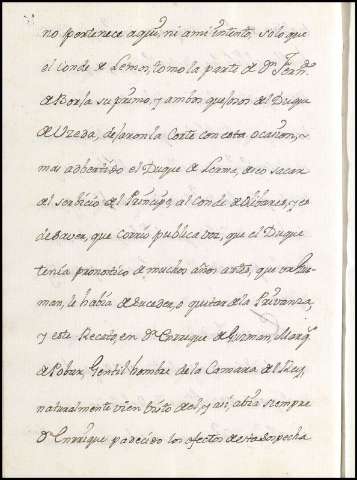 no pertenece aqui, ni a mi yntento, solo que
el Conde de Lemos, tomo la parte de Dn. Fern.do
de Borja su primo, y ambos quejosos del Duque
de Uzeda, dejaron la Corte con esta ocasion, y
mas adbertido el Duque de Lerma, deseo sacar
del serbicio del Principe, al Conde de Olibares, y es
de saver, que corrio publica voz, que el Duque
tenia pronostico de muchos años antes, que un Guz-
man, le habia de suceder, o quitar de la Privanza,
y este Recato, en Dn Enrique de Guzman, Marq.
de Pobar, Gentil hombre de la Camara del Rey,
naturalmente vien bisto de el, y asi, abia siempre
Dn Enrrique padecido los efectos de esta sospecha